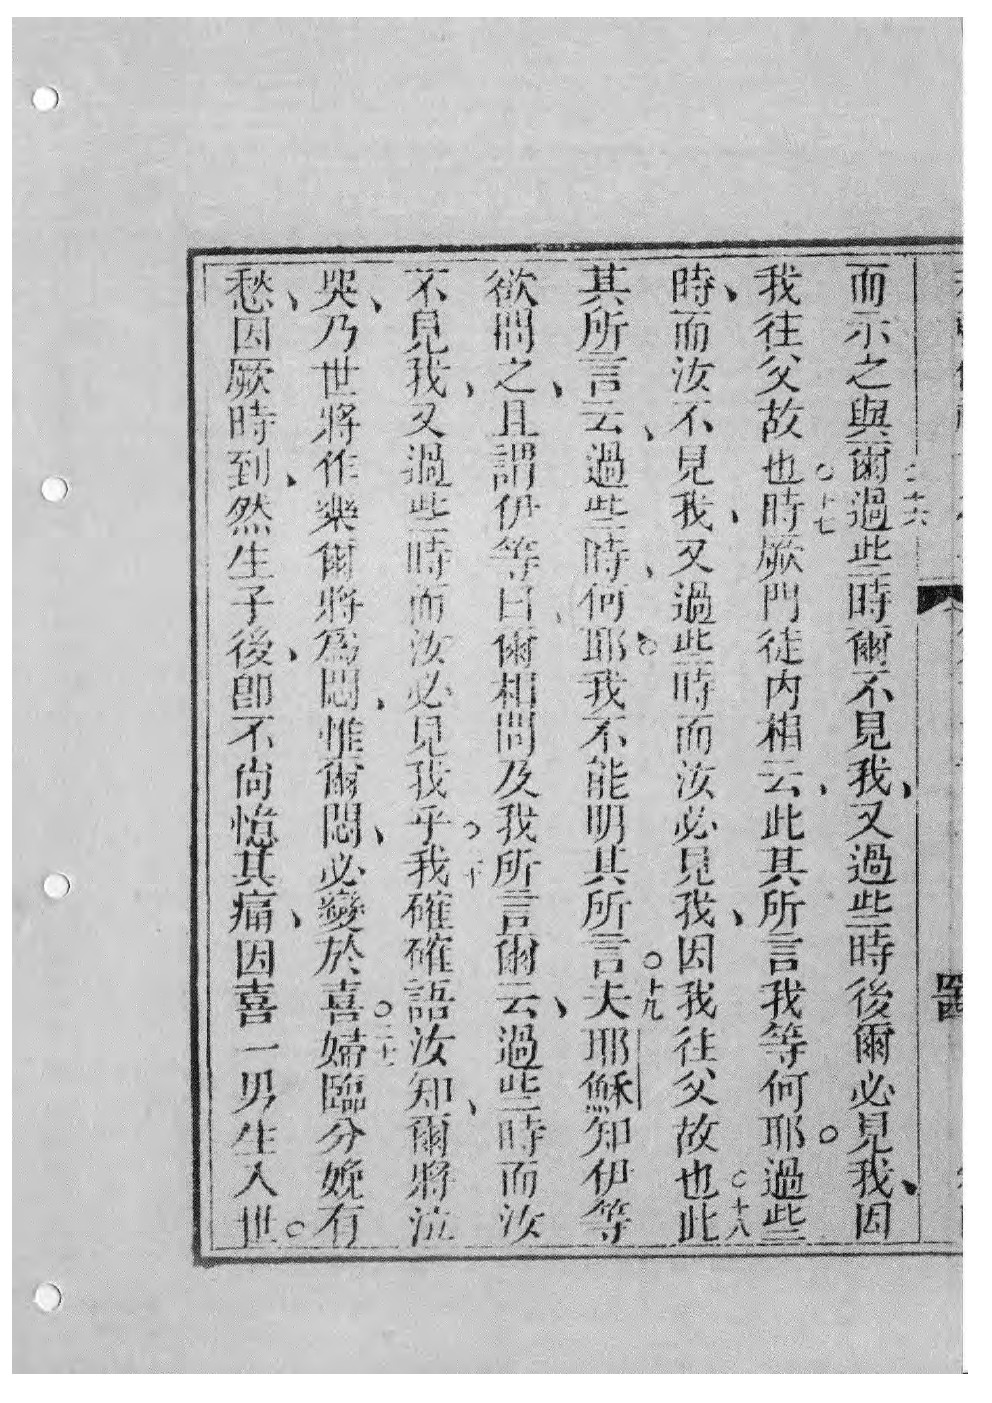 而示之與爾○十六過些時爾不見我、又過些時後爾必見我、因
我往父故也○十七時厥門徒內相云、此其所言我等何耶。過些○十八
時、而汝不見我、又過些時而汝必見我、因我往父故也此
其所言云、過些時、何耶。我不能明其所言○十九夫耶穌知伊等
欲問之、且謂伊等曰、爾相問及我所言爾云、過些時而汝
不見我、又過些時而汝必見我乎○二十我確確語汝知、爾將泣
哭、乃世將作樂爾將為悶、惟爾悶、必變於喜○二十一婦臨分娩有
愁、因厥時到、然生子後、即不尚憶其痛、因喜一男生入世。